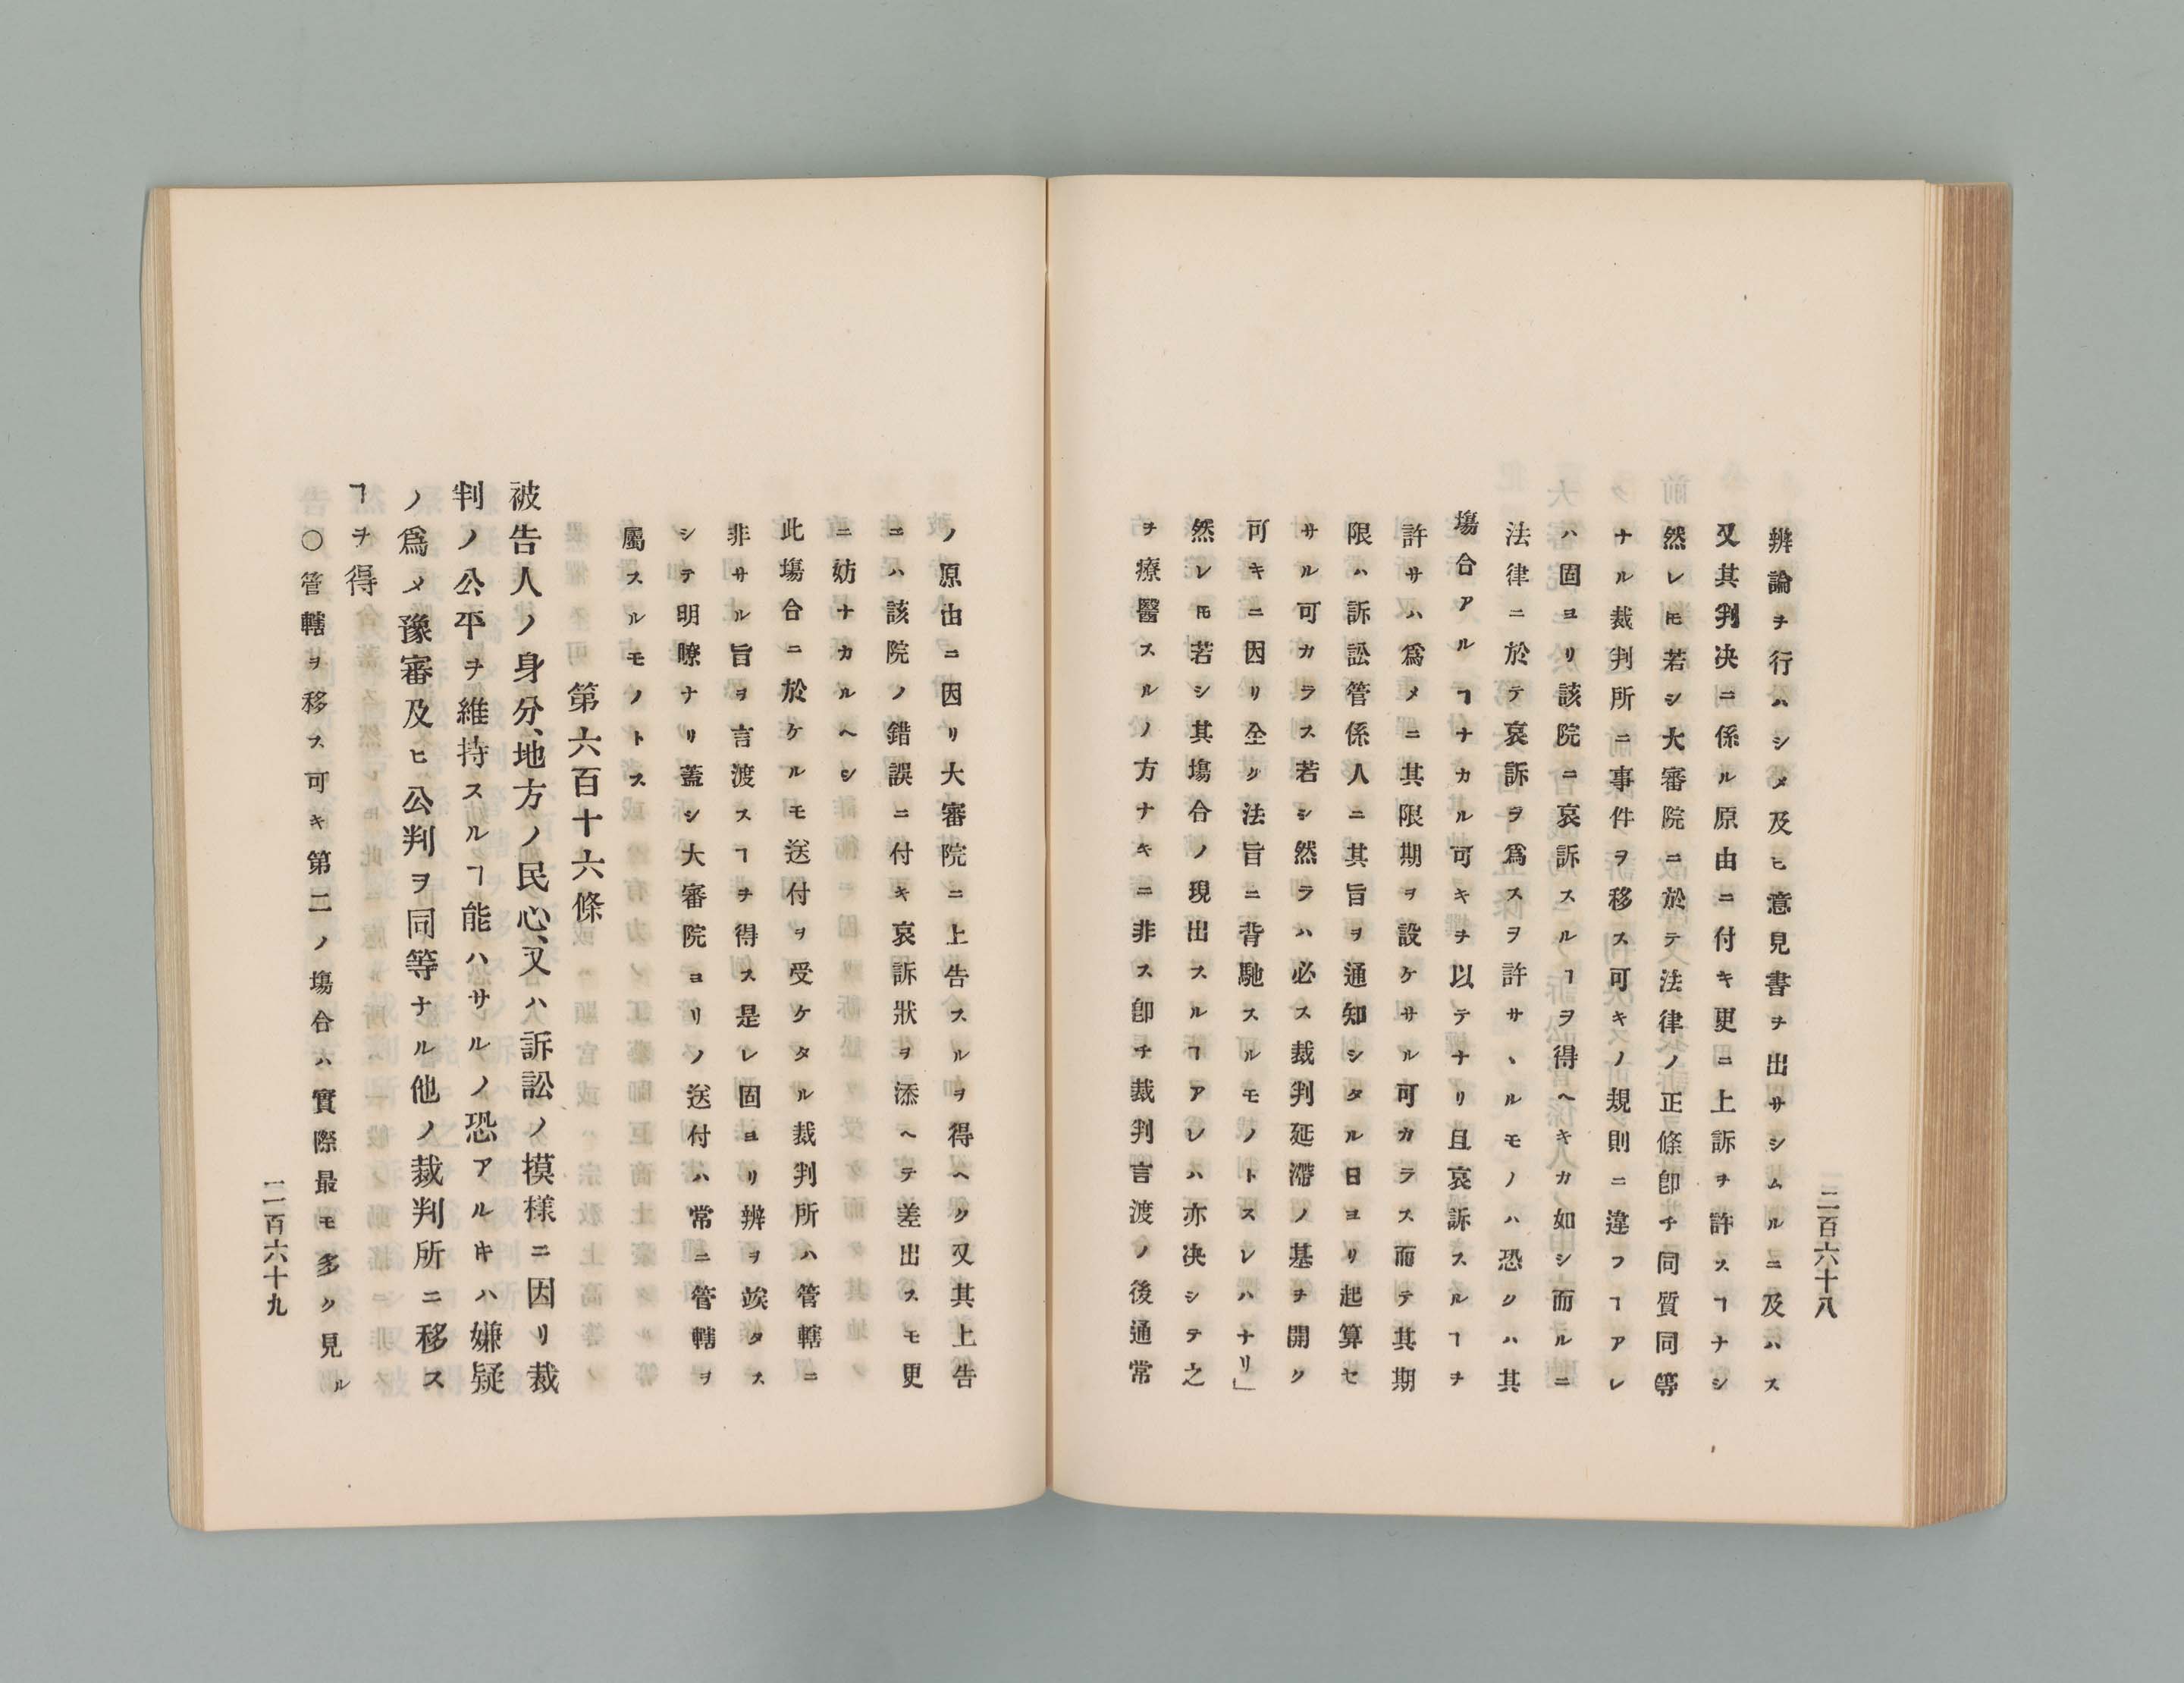 二百六十八
辨論ヲ行ハシメ及ヒ意見書ヲ出サシムルニ及ハス
又其判决ニ係ル原由ニ付キ更ニ上訴ヲ許スヿナシ
然レㇳモ若シ大審院ニ於テ法律ノ正條卽チ同質同等
ナル裁判所ニ事件ヲ移ス可キノ規則ニ違フヿアレ
ハ固ヨリ該院ニ哀訴スルヿヲ得ヘキカ如シ而ルニ
法律ニ於テ哀訴ヲ爲スヲ許サヽルモノハ恐クハ其
塲合アルヿナカル可キヲ以テナリ且哀訴スルヿヲ
許サハ爲メニ其限期ヲ設ケサル可カラス而テ其期
限ハ訴訟管係人ニ其旨ヲ通知シタル日ヨリ起算セ
サル可カラス若シ然ラハ必ス裁判延滯ノ基ヲ開ク
可キニ因リ全ク法旨ニ背馳スルモノトスレハナリ」
然レㇳモ若シ其塲合ノ現出スルヿアレハ亦决シテ之
ヲ療醫スルノ方ナキニ非ス卽チ裁判言渡ノ後通常
ノ原由ニ因リ大審院ニ上告スルヲ得ヘク又其上告
ニハ該院ノ錯誤ニ付キ哀訴狀ヲ添ヘテ差出スモ更
ニ妨ナカルヘシ
此塲合ニ於ケルモ送付ヲ受ケタル裁判所ハ管轄ニ
非サル旨ヲ言渡スヿヲ得ス是レ固ヨリ辨ヲ竢タス
シテ明瞭ナリ蓋シ大審院ヨリノ送付ハ常ニ管轄ヲ
屬スルモノトス
第六百十六條
被告人ノ身分、地方ノ民心、又ハ訴訟ノ摸樣ニ因リ裁
判ノ公平ヲ維持スルヿ能ハサルノ恐アルㇳキハ嫌疑
ノ爲メ豫審及ヒ公判ヲ同等ナル他ノ裁判所ニ移ス
ヿヲ得
○管轄ヲ移ス可キ第二ノ塲合ハ實際最モ多ク見ル
二百六十九